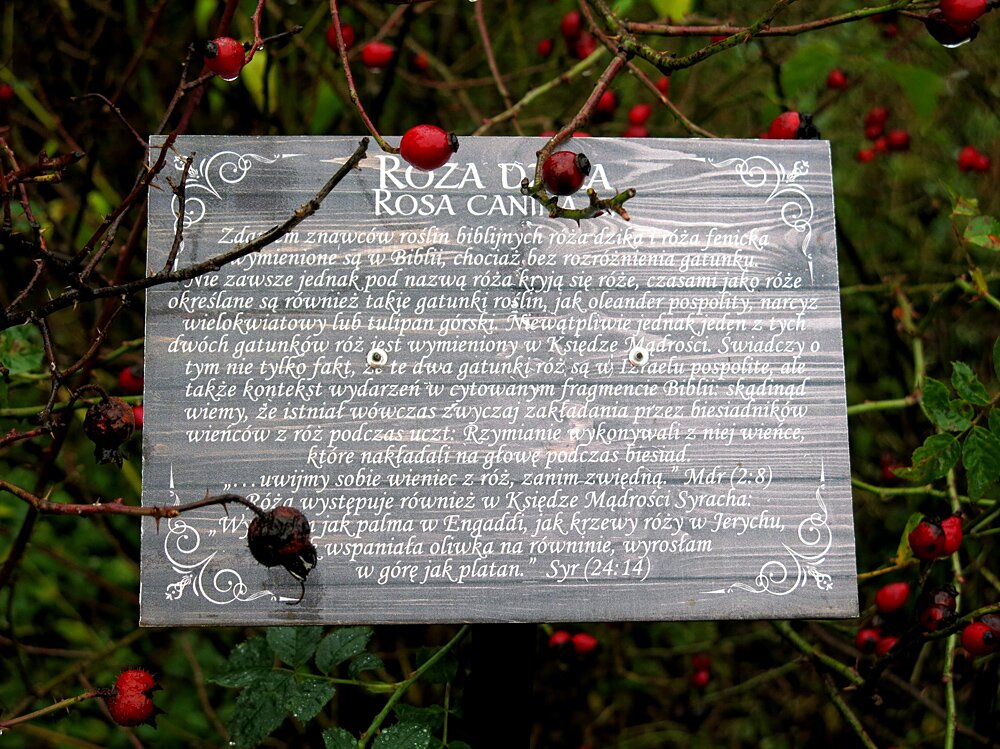 RÓŻA DZIKA
ROSA CANINA
Zdaniem znawców roślin biblijnych róża dzika i róża fenicka
wymienione są w Biblii, chociaż bez rozróżnienia gatunku.
Nie zawsze jednak pod nazwą róża kryją się róże, czasami jako róże
określane są również takie gatunki roślin, jak oleander pospolity, narcyz
wielokwiatowy lub tulipan górski. Niewątpliwie jednak jeden z tych
dwóch gatunków róż jest wymieniony w Księdze Mądrości. Świadczy o
tym nie tylko fakt, że te dwa gatunki róż są w Izraelu pospolite, ale
także kontekst wydarzeń w cytowanym fragmencie Biblii: skądinąd
wiemy, że istniał wówczas zwyczaj zakładania przez biesiadników
wieńców z róż podczas uczt: Rzymianie wykonywali z niej wieńce,
które nakładali na głowę podczas biesiad.
„…uwijmy sobie wieniec z róż, zanim zwiędną.” Mdr (2:8)
Róża występuje również w Księdze Mądrości Syracha:
jak palma w Engaddi, jak krzewy róży w Jerychu,
wspaniała oliwka na równinie, wyrosłam
w górę jak platan.” Syr (24:14)